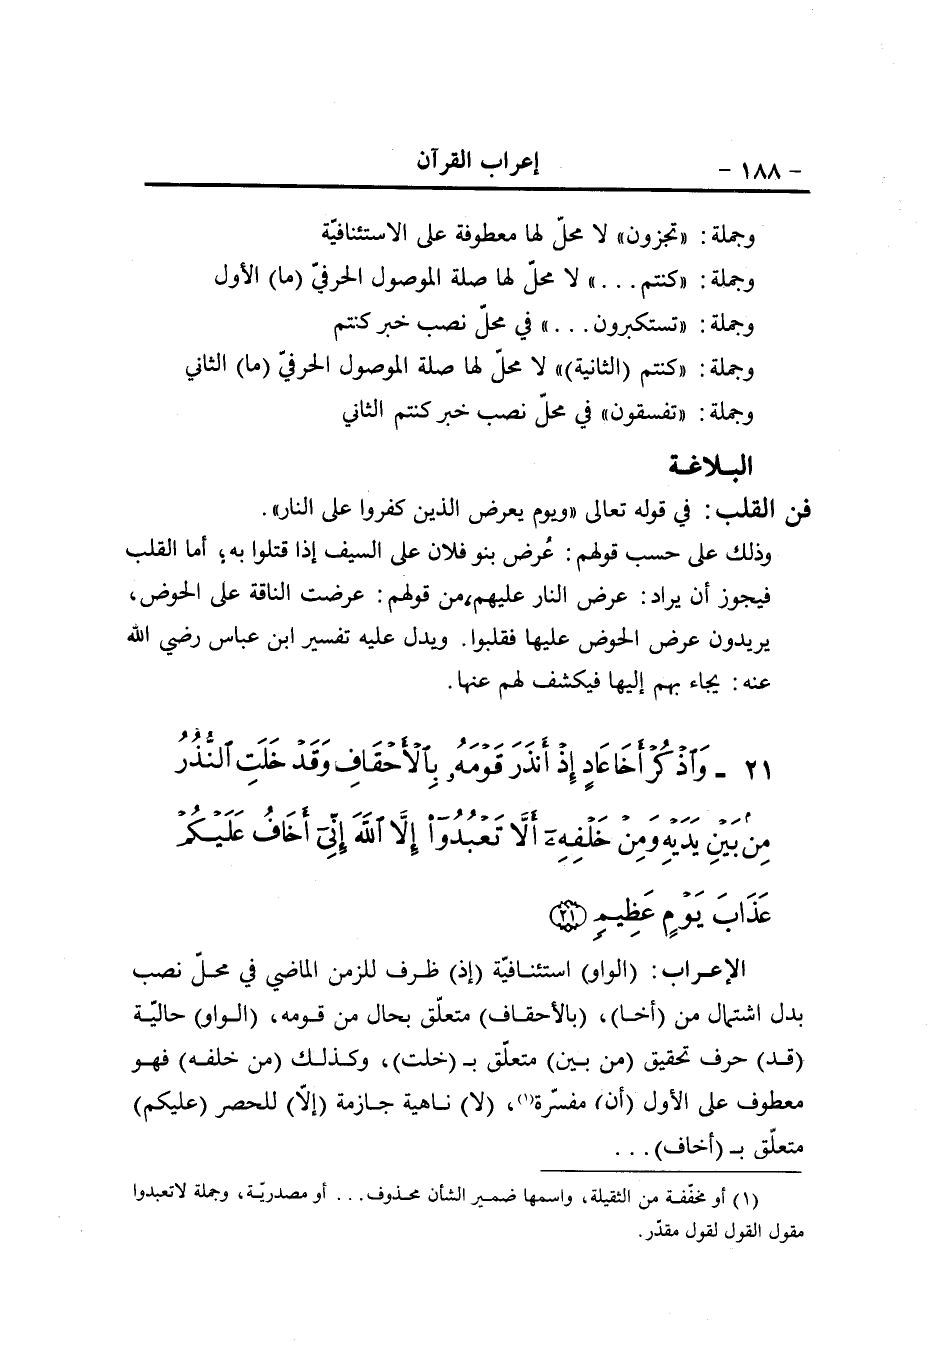 - ١٨٨ -
إعراب القرآن
وجملة: «تجزون» لا محلّ لها معطوفة على الاستئنافيّة
وجملة: «كنتم...» لا محلّ لها صلة الموصول الحرفيّ (ما) الأول
وجملة: «تستكبرون...» في محلّ نصب خبر كنتم
وجملة: «كنتم (الثانية)» لا محلّ لها صلة الموصول الحرفيّ (ما) الثاني
وجملة: «تفسقون» في محلّ نصب خبر كنتم الثاني
البلاغة
فن القلب: في قوله تعالى «ويوم يعرض الذين كفروا على النار».
وذلك على حسب قولهم: عُرض بنو فلان على السيف إذا قتلوا به؛ أما القلب
فيجوز أن يراد: عرض النار عليهم،من قولهم: عرضت الناقة على الحوض،
يريدون عرض الحوض عليها فقلبوا. ويدل عليه تفسير ابن عباس رضي الله
عنه: يجاء بهم إليها فيكشف لهم عنها.
٢١ - وَٱذْكُرْ أَخَا عَادٍ إِذْ أَنذَرَ قَوْمَهُۥ بِٱلْأَحْقَافِ وَقَدْ خَلَتِ ٱلنُّذُرُ
مِنۢ بَيْنِ يَدَيْهِ وَمِنْ خَلْفِهِۦٓ أَلَّا تَعْبُدُوٓا۟ إِلَّا ٱللَّهَ إِنِّىٓ أَخَافُ عَلَيْكُمْ
عَذَابَ يَوْمٍ عَظِيمٍ ﴿٢١﴾
الإعراب: (الواو) استئنافيّة (إذ) ظرف للزمن الماضي في محلّ نصب
بدل اشتمال من (أخا)، (بالأحقاف) متعلّق بحال من قومه، (الواو) حاليّة
(قد) حرف تحقيق (من بين) متعلّق بـ (خلت)، وكذلك (من خلفه) فهو
معطوف على الأول (أن) مفسّرة(١)، (لا) ناهية جازمة (إلّا) للحصر (عليكم)
متعلّق بـ (أخاف)...
(١) أو مخفّفة من الثقيلة، واسمها ضمير الشأن محذوف... أو مصدريّة، وجملة لاتعبدوا
مقول القول لقول مقدّر.